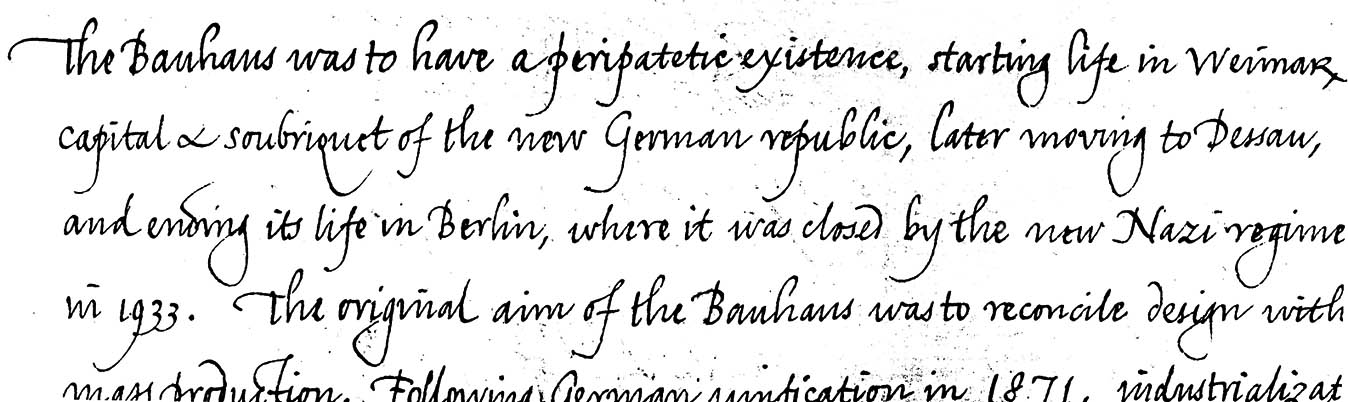 The Bauhaus was to have a peripatetic existence, starting life in Weimar,
capital & soubriquet of the new German republic, later moving to Dessau,
and ending its life in Berlin, where it was closed by the new Nazi regime
in 1933. The original aim of the Bauhaus was to reconcile design with
mass production. Following German unification in 1871, industrializat